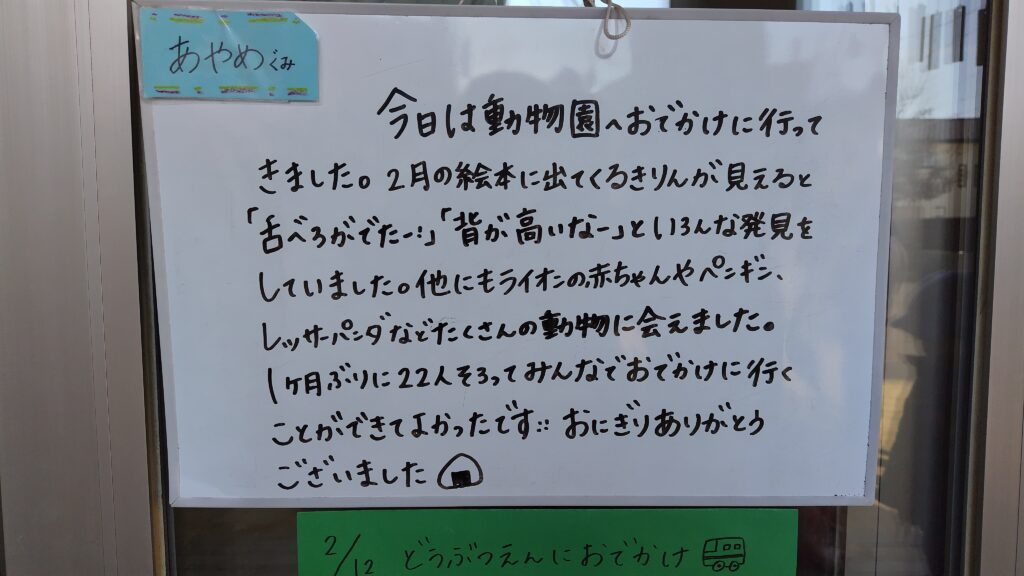 あやめぐみ
今日は動物園へおでかけに行って
きました。2月の絵本に出てくるきりんが見えると
「舌べろがでたー!」「背が高いなー」といろんな発見を
していました。他にもライオンの赤ちゃんやペンギン、
レッサーパンダなどたくさんの動物に会えました。
1ヶ月ぶりに22人そろってみんなでおでかけに行く
ことができてよかったです:: おにぎりありがとう
ございました
2/12 どうぶつえんにおでかけ